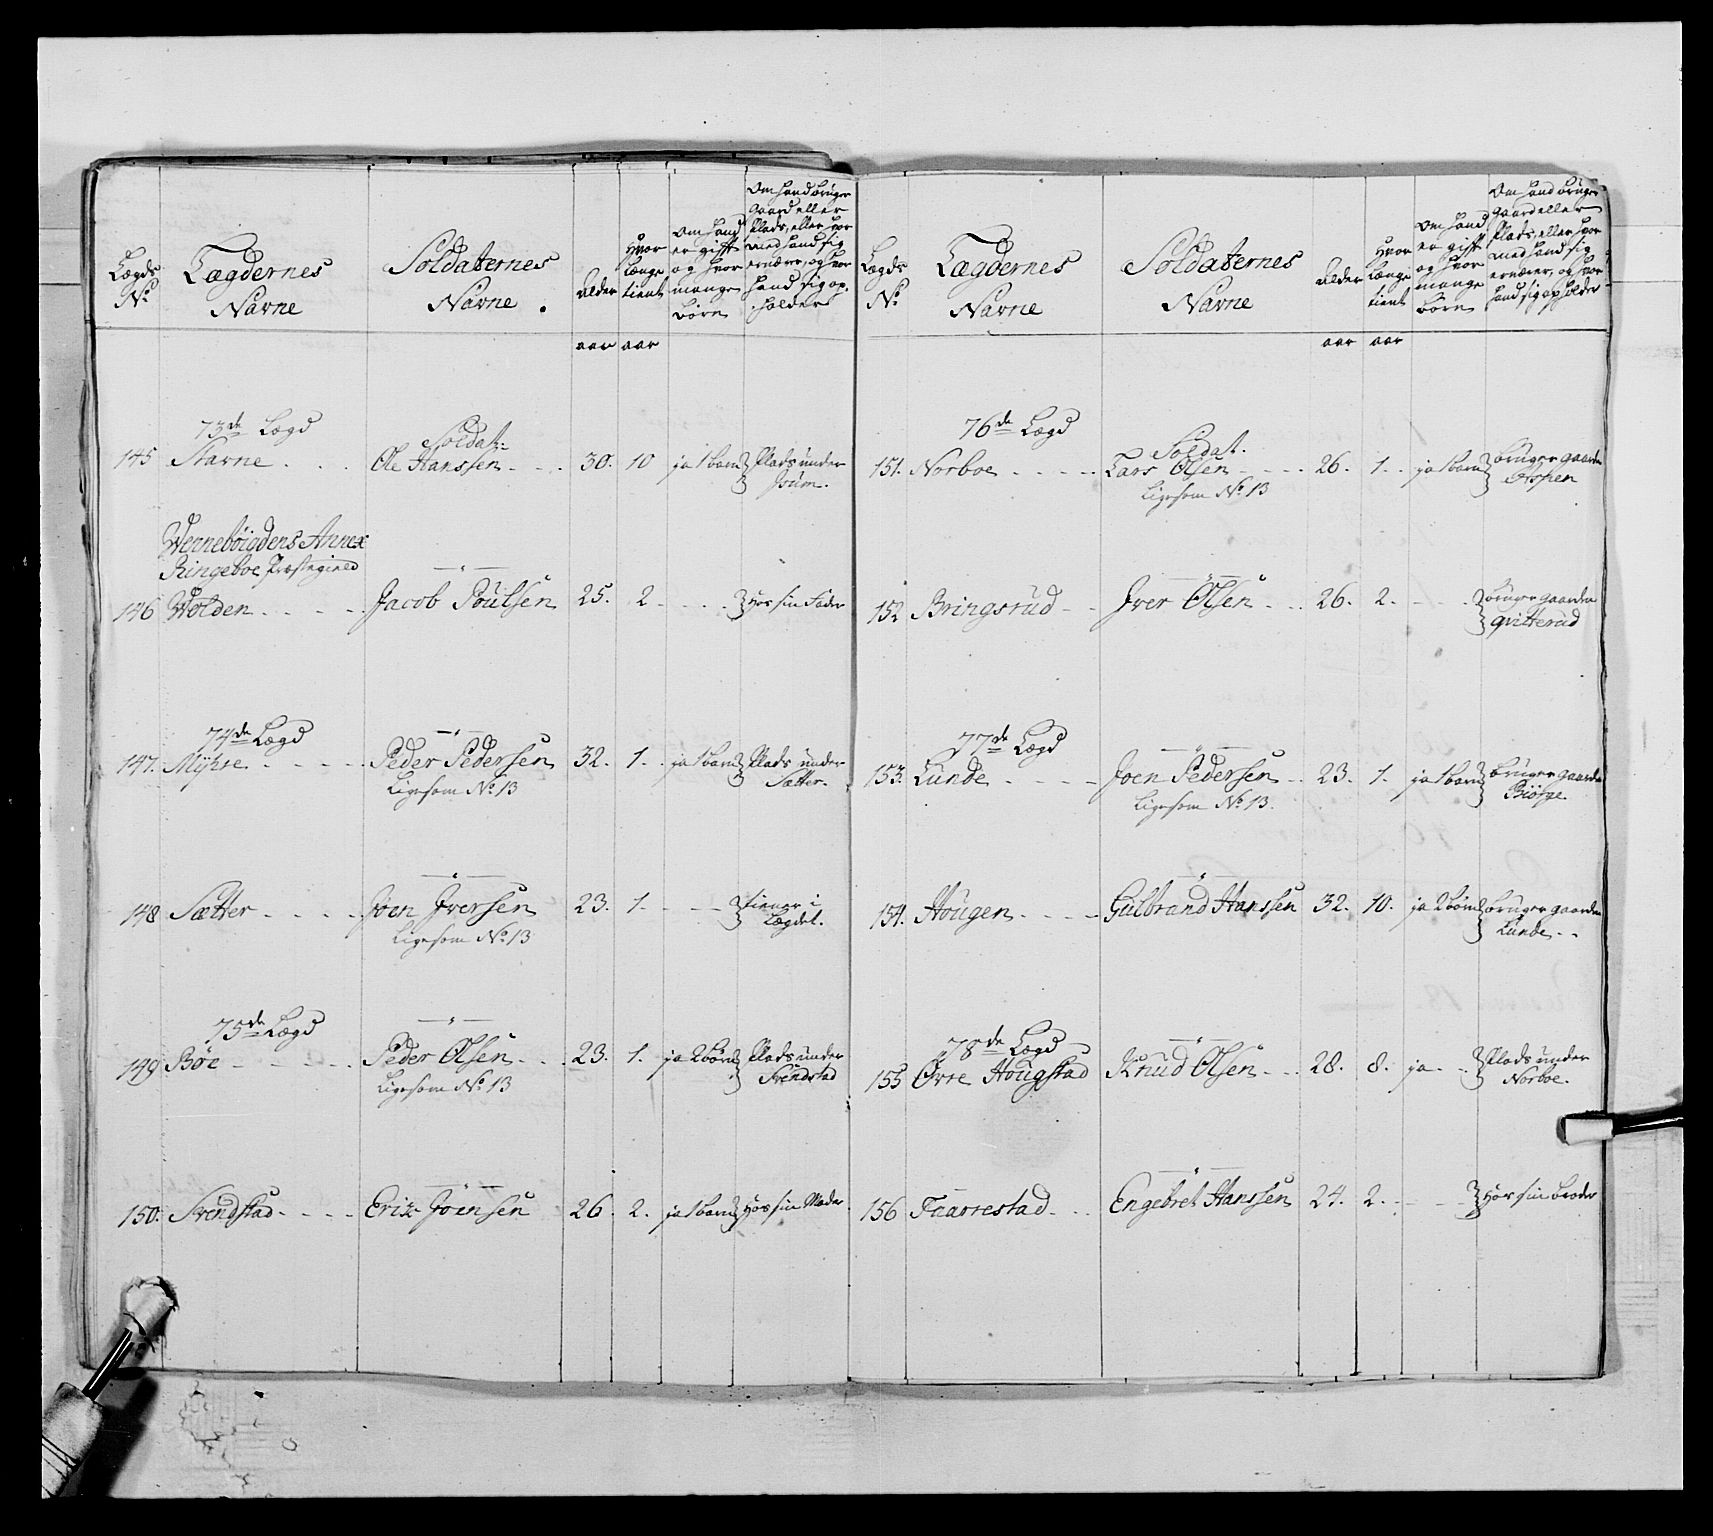 Lægds No
Lægdernes Navne
Soldaternes Navne .
Alder
Hvor længe tient
Om hand er gift og hvor mange börn
Om hand bruger gaard eller Plads, eller hvor med hand sig ernærer, og hvor hand sig opholder
aar aar
73de Lægd Soldat:
145 Starne . . . Ole Hanssen - . . 30. 10 ja 1 barn } Plads under
Isum.
Wennebøigdens Annex
Ringeboe Præstegield
146 Wolden . . . . . Jacob Poulsen 25. 2 . . . . } Hos sin Fader
74de Lægd — " —
147. Myhre . - - - - Peder Pedersen 32. 1. . ja 1 barn } Plads under
Ligesom No 13 Sætter.
— " —
148 Sætter - . . . . Joen Iversen 23. 1. . - - - } tiener i
Ligesom No 13 Lægdet.
75de Lægd — " —
149 Bøe - - - - - Peder Olsen - . . 23. 1. ja 2 børn } Plads under
Ligesom No 13 Svendstad
— " —
150. Svendstad - . . . . Erik Joensen 26. 2. ja 1 barn } Hos sin Moder
Lægds No
Lægdernes Navne
Soldaternes Navne
Alder
Hvor længe tient
Om hand er gift og hvor mange börn
Om hand bruger gaard eller Plads, eller hvor med hand sig ernærer, og hvor hand sig opholder
aar aar
76de Lægd Soldat.
151. Norboe - - - - - Lars Olsen - - - - 26. 1. . ja 1 barn } bruger gaarden
Ligesom No 13 Aspen
— " —
152 Bringsrud - - Iver Olsen - . . 26. 2. - - . } bruger gaarden
qvitterud
77de Lægd — " —
153. Lunde - - - - Joen Pedersen - . 23. 1. ja 1 barn } bruger gaarden
Ligesom No 13. Biørge
— " —
154. Hougen - . . . - Gulbrand Hanssen 32. 10. ja 2 børn } bruger gaarden
Lunde - -
78de Lægd — " —
155 Øvre Hougstad Knud Olsen - . . 28. 8. ja - . } Plads under
Norboe.
— " —
156 Taarrestad - . . Engebret Hanssen 24. 2. - - - } Hos sin broder